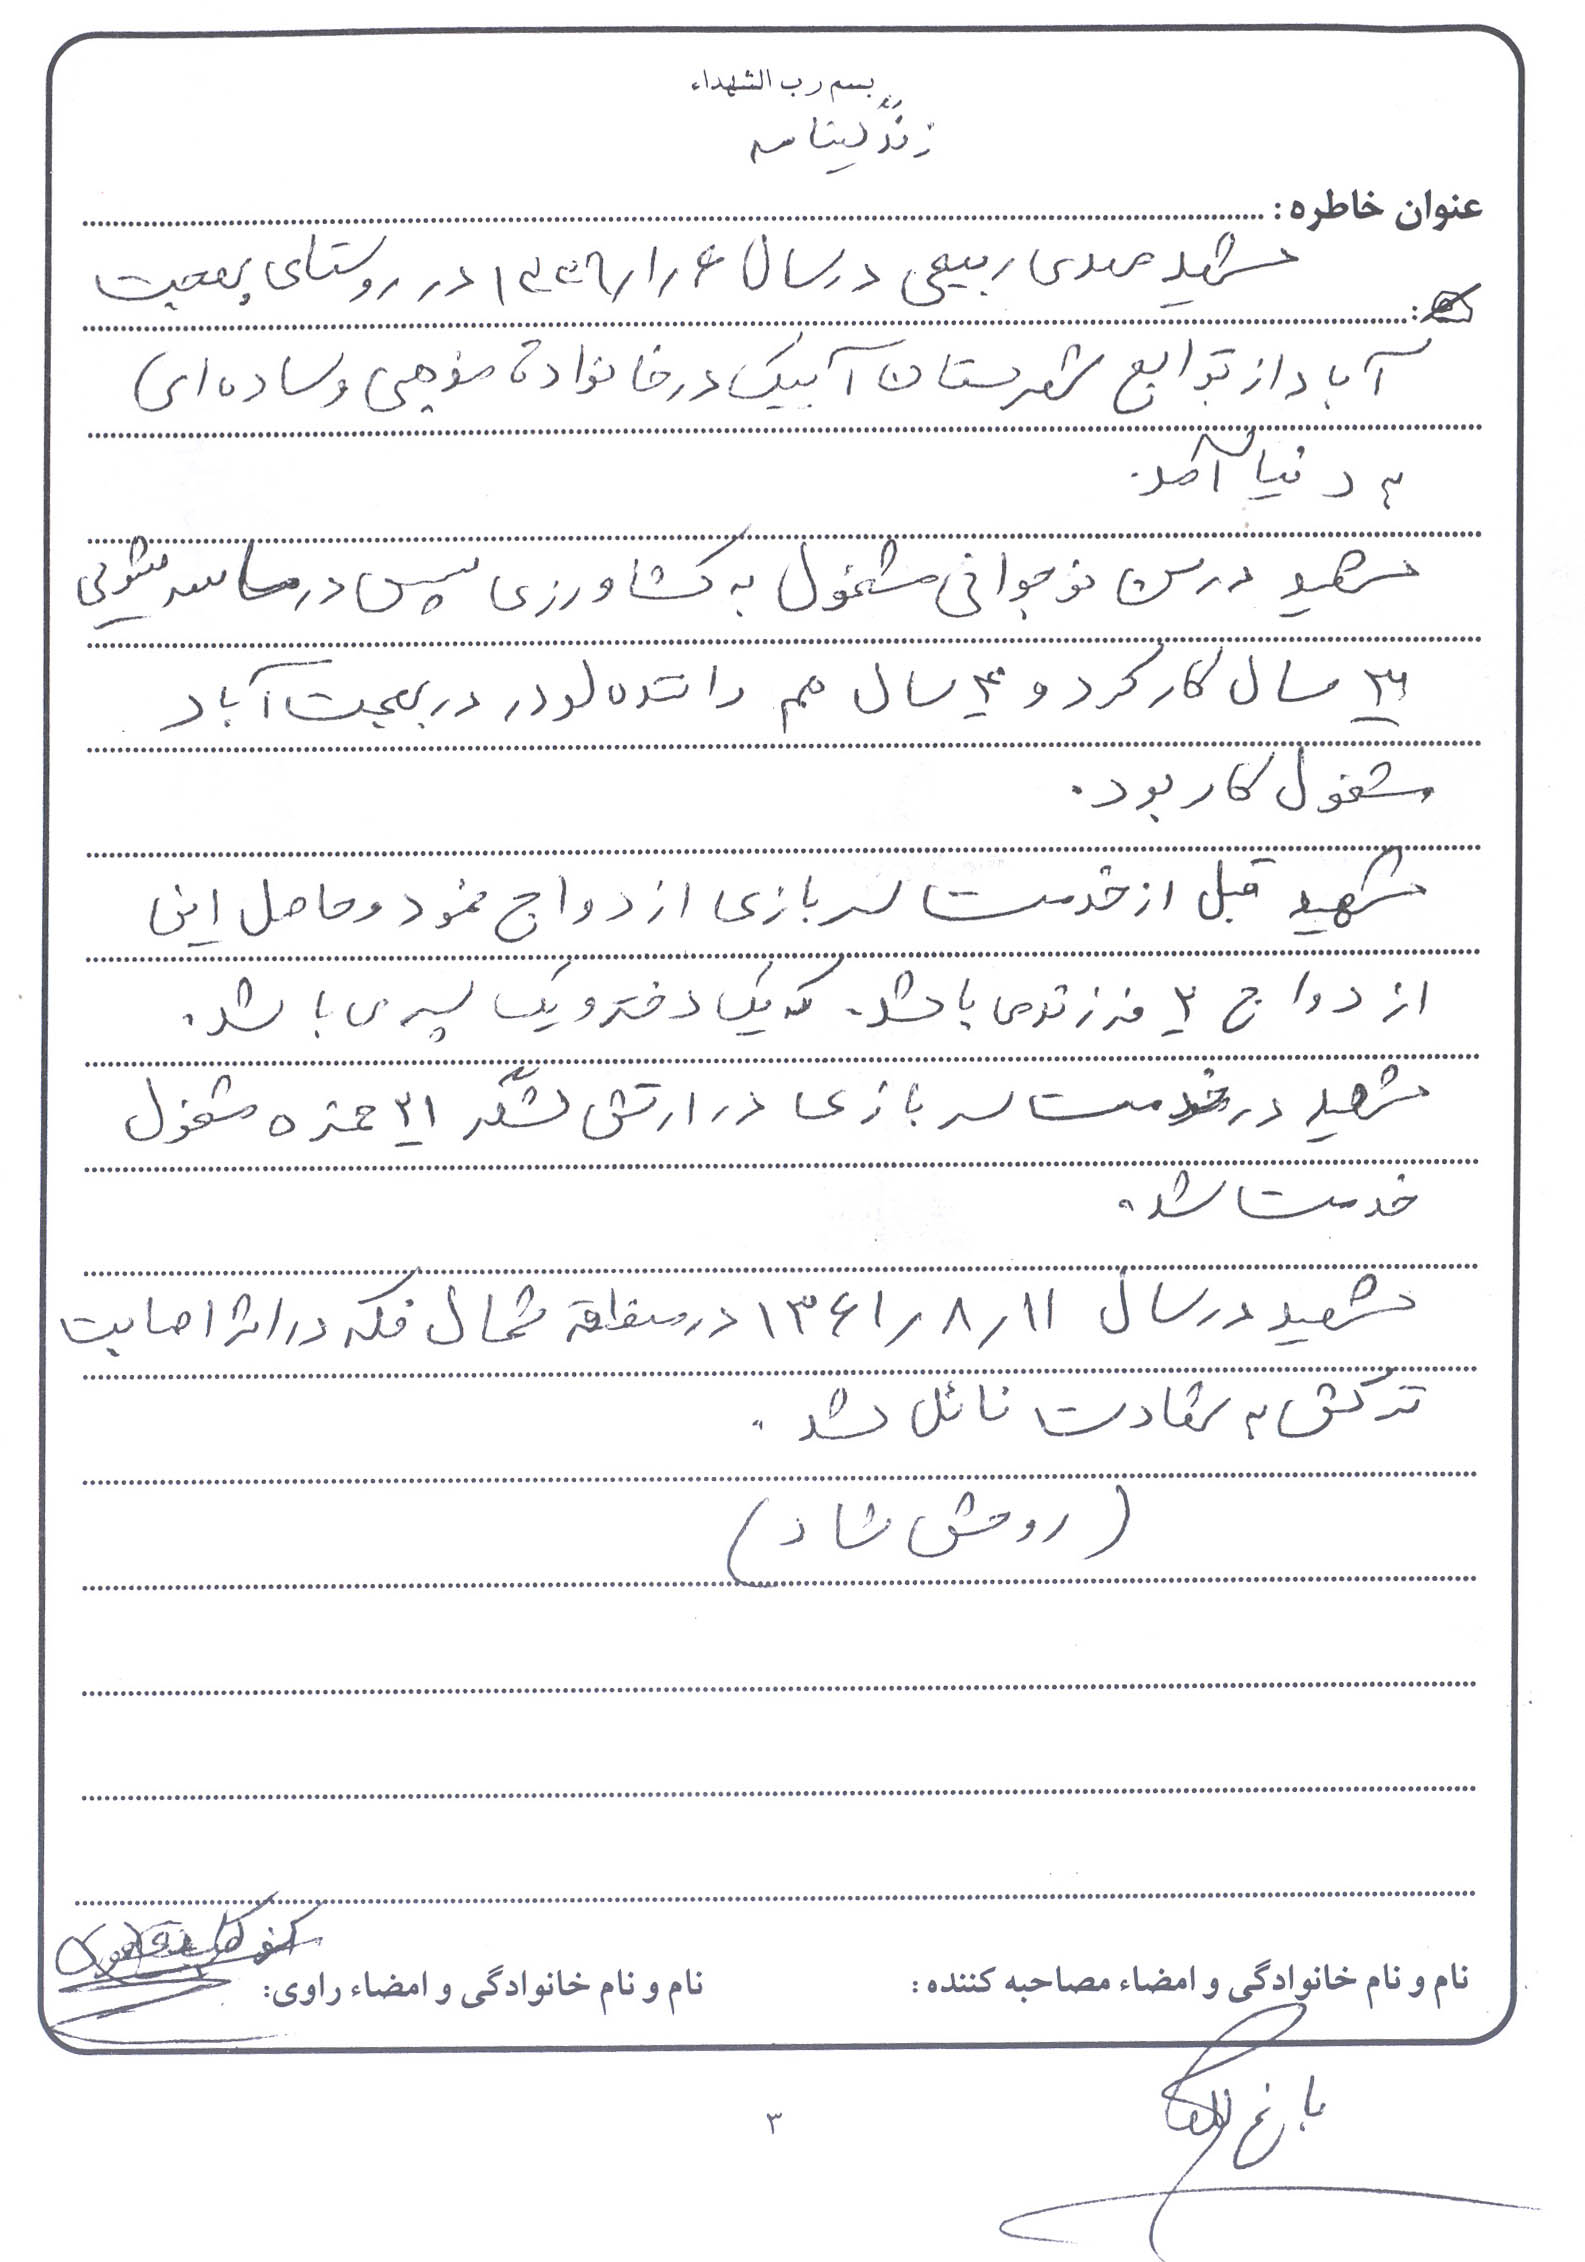 بسم رب الشهداء
زندگینامه
عنوان خاطره:
شهید مهدی ربیعی در سال ۱۳۳۹/۱/۶ در روستای بهجت
آباد از توابع شهرستان آبیک در خانواده مذهبی و ساده ای
به دنیا آمد.
شهید در سن نوجوانی مشغول به کشاورزی سپس در ماسه شویی
سال کار کرد و ۴ سال هم راننده لودر در بهجت آباد
مشغول کار بود.
شهید قبل از خدمت سربازی ازدواج نمود و حاصل این
ازدواج ۲ فرزند می باشد. که یک دختر و یک پسر می باشد.
شهید در خدمت سربازی در ارتش لشگر ۲۱ حمزه مشغول
خدمت شد.
شهید در سال ۱۳۶۱/۸/۱۱ در منطقه شمال فکه در اثر اصابت
ترکش به شهادت نائل شد.
(روحش شاد)
نام و نام خانوادگی و امضاء مصاحبه کننده: نام و نام خانوادگی و امضاء راوی:
۳